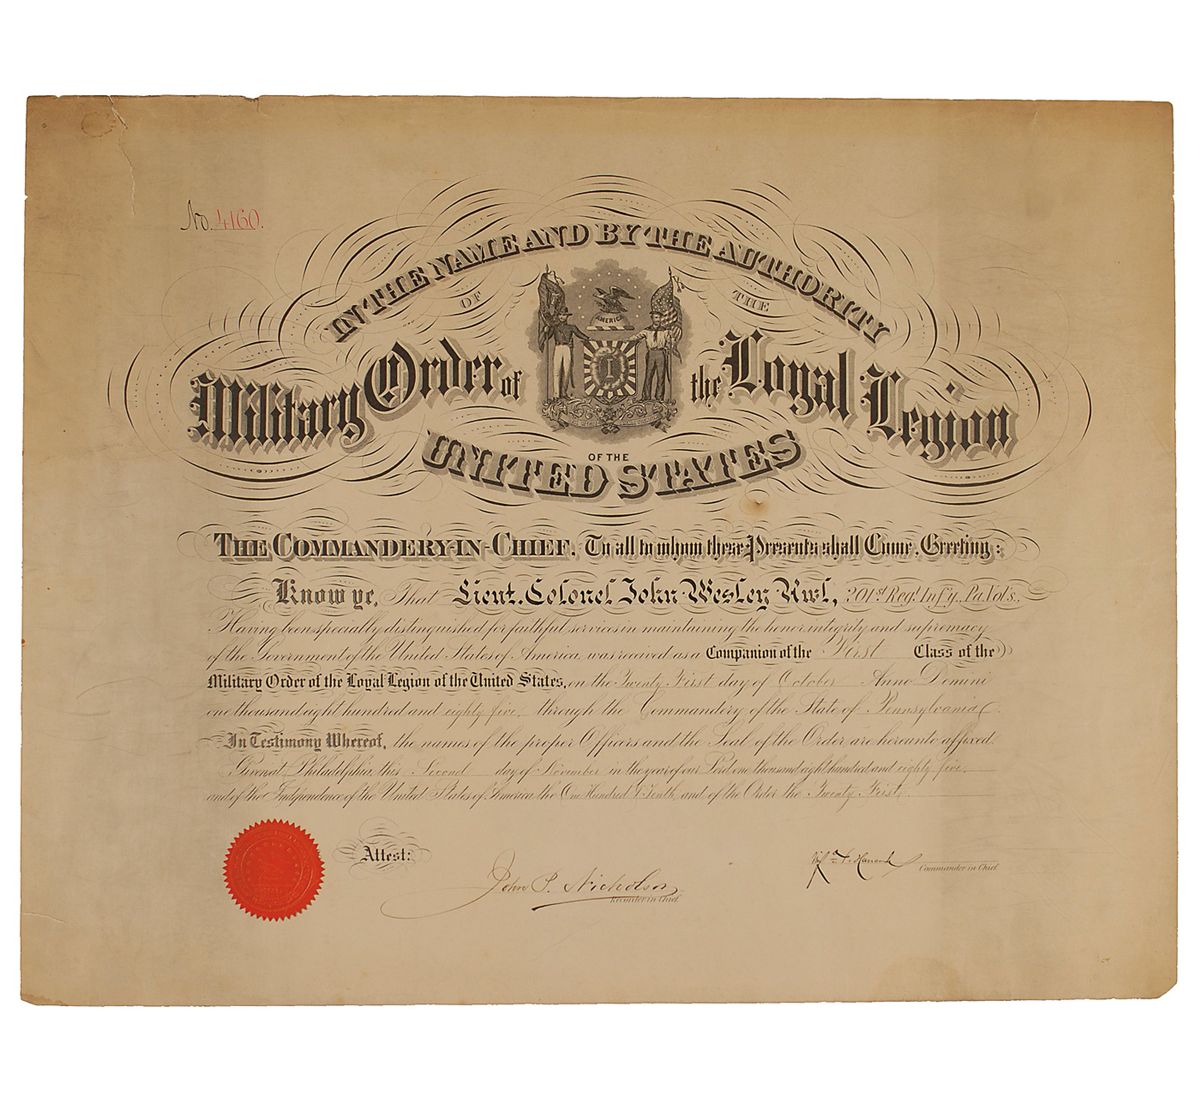 No. 4160.
IN THE NAME AND BY THE AUTHORITY
OF THE
AMERICA
Military Order of the Loyal Legion
OF THE
UNITED STATES
THE COMMANDERY-IN-CHIEF, To all to whom these Presents shall Come, Greeting:
Know ye, That Lieut. Colonel John Wesley 201st Reg't Inf'y. Pa. Vols.
Having been specially distinguished for faithful services in maintaining the honor, integrity and supremacy
of the Government of the United States of America, was received as a Companion of the First Class of the
Military Order of the Loyal Legion of the United States, on the Twenty First day of October Anno Domini
one thousand eight hundred and eighty five, through the Commandery of the State of Pennsylvania.
In Testimony Whereof, the names of the proper Officers and the Seal of the Order are hereunto affixed.
Given at Philadelphia, this Second day of November in the year of our Lord one thousand eight hundred and eighty five,
and of the Independence of the United States of America the One Hundred & Tenth, and of the Order the Twenty First.
Attest:
John P. Nicholson
Recorder in Chief
Winf'd S. Hancock
Commander in Chief